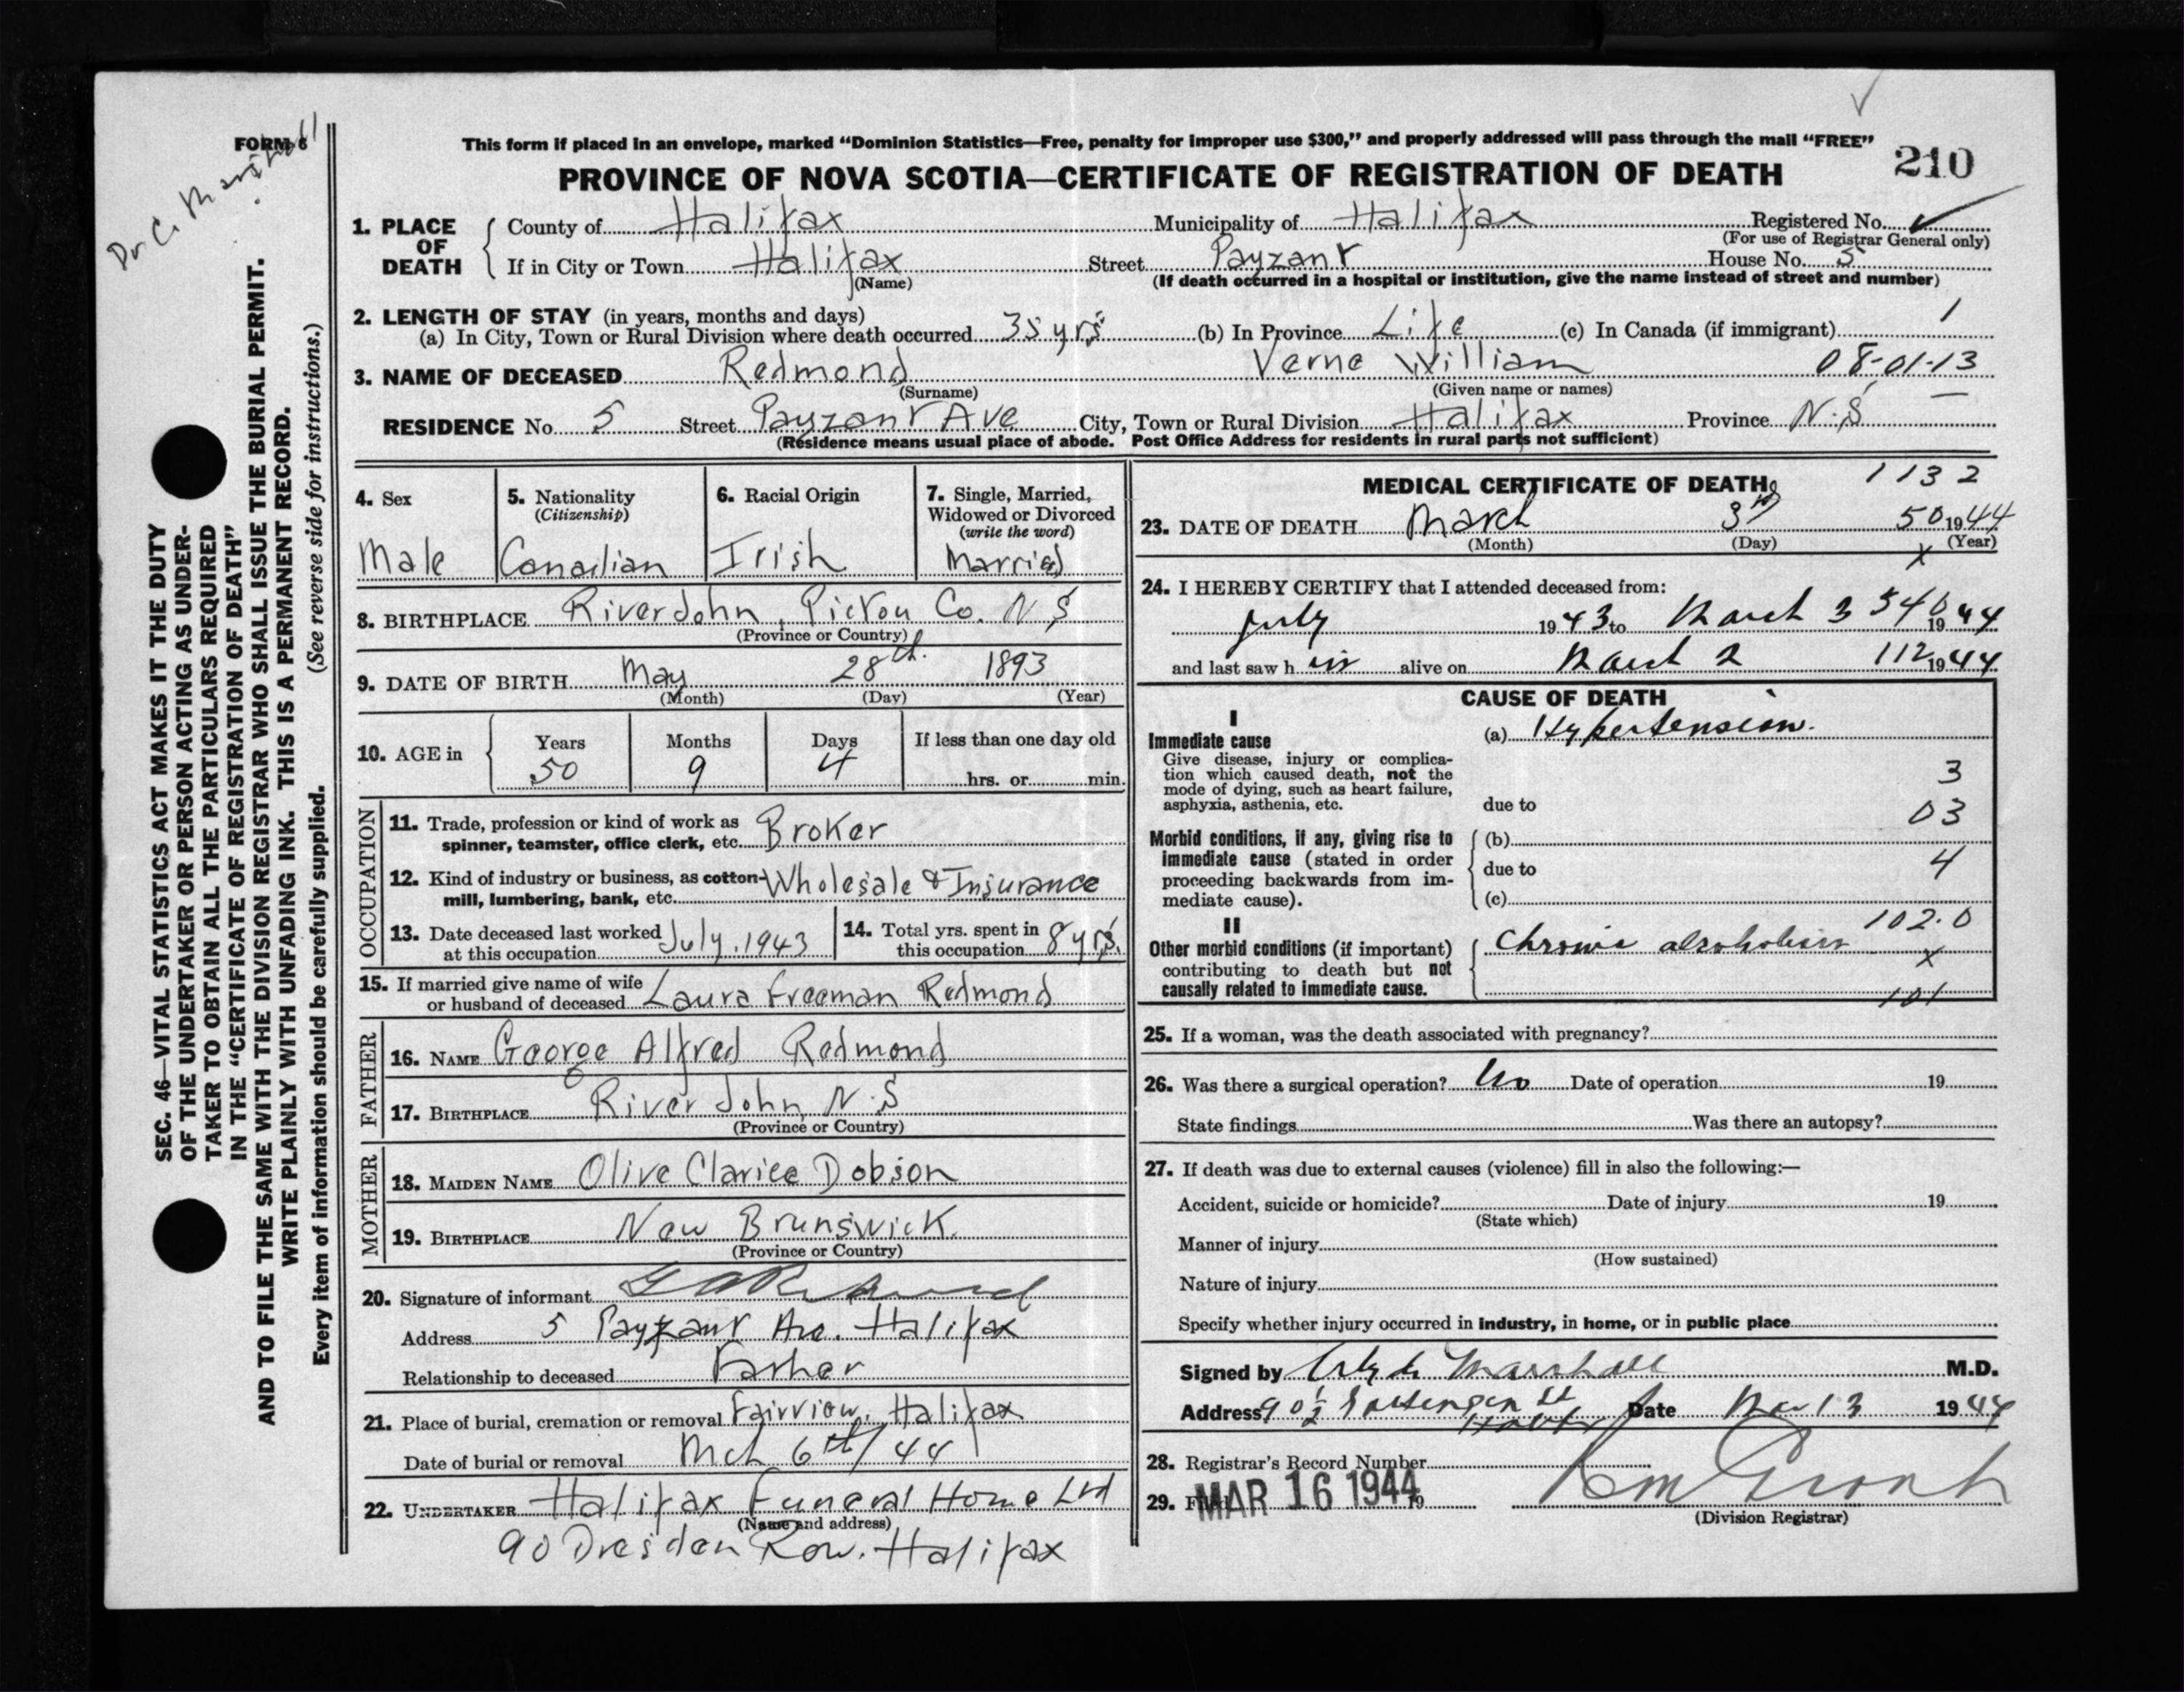 FORM 6
Dr C. Marshall
This form if placed in an envelope, marked “Dominion Statistics—Free, penalty for improper use $300,” and properly addressed will pass through the mail “FREE”
PROVINCE OF NOVA SCOTIA—CERTIFICATE OF REGISTRATION OF DEATH
210
1. PLACE OF DEATH
County of Halifax Municipality of Halifax Registered No.
(For use of Registrar General only)
If in City or Town Halifax Street Payzant House No. 5
(Name) (If death occurred in a hospital or institution, give the name instead of street and number)
2. LENGTH OF STAY (in years, months and days)
(a) In City, Town or Rural Division where death occurred 35 yrs (b) In Province Life (c) In Canada (if immigrant) 1
3. NAME OF DECEASED Redmond Verne William 08-01-13
(Surname) (Given name or names)
RESIDENCE No. 5 Street Payzant Ave City, Town or Rural Division Halifax Province N.S
(Residence means usual place of abode. Post Office Address for residents in rural parts not sufficient)
SEC. 46—VITAL STATISTICS ACT MAKES IT THE DUTY
OF THE UNDERTAKER OR PERSON ACTING AS UNDER-
TAKER TO OBTAIN ALL THE PARTICULARS REQUIRED
IN THE “CERTIFICATE OF REGISTRATION OF DEATH”
AND TO FILE THE SAME WITH THE DIVISION REGISTRAR WHO SHALL ISSUE THE BURIAL PERMIT.
WRITE PLAINLY WITH UNFADING INK. THIS IS A PERMANENT RECORD.
Every item of information should be carefully supplied. (See reverse side for instructions.)
4. Sex
Male
5. Nationality
(Citizenship)
Canadian
6. Racial Origin
Irish
7. Single, Married,
Widowed or Divorced
(write the word)
Married
8. BIRTHPLACE River John, Pictou Co. N.S
(Province or Country)
9. DATE OF BIRTH May 28th. 1893
(Month) (Day) (Year)
10. AGE in
Years 50
Months 9
Days 4
If less than one day old
hrs. or min.
OCCUPATION
11. Trade, profession or kind of work as
spinner, teamster, office clerk, etc. Broker
12. Kind of industry or business, as cotton-
mill, lumbering, bank, etc. Wholesale & Insurance
13. Date deceased last worked
at this occupation July. 1943
14. Total yrs. spent in
this occupation 8 yrs.
15. If married give name of wife
or husband of deceased Laura Freeman Redmond
FATHER
16. NAME George Alfred Redmond
17. BIRTHPLACE River John, N.S
(Province or Country)
MOTHER
18. MAIDEN NAME Olive Clarice Dobson
19. BIRTHPLACE New Brunswick.
(Province or Country)
20. Signature of informant G A Redmond
Address 5 Payzant Ave. Halifax
Relationship to deceased Father
21. Place of burial, cremation or removal Fairview, Halifax
Date of burial or removal Mch 6th/44
22. UNDERTAKER Halifax Funeral Home Ltd
(Name and address)
90 Dresden Row. Halifax
MEDICAL CERTIFICATE OF DEATH
1132
23. DATE OF DEATH March 3rd 50 1944
(Month) (Day) (Year)
x
24. I HEREBY CERTIFY that I attended deceased from:
July 1943 to March 3 546 1944
and last saw h im alive on March 2 112 1944
CAUSE OF DEATH
I
Immediate cause
Give disease, injury or complica-
tion which caused death, not the
mode of dying, such as heart failure,
asphyxia, asthenia, etc.
(a) Hypertension.
3
due to
03
Morbid conditions, if any, giving rise to
immediate cause (stated in order
proceeding backwards from im-
mediate cause).
(b)
due to
4
(c)
II
Other morbid conditions (if important)
contributing to death but not
causally related to immediate cause.
102.0
Chronic alcoholism
x
101
25. If a woman, was the death associated with pregnancy?
26. Was there a surgical operation? No Date of operation 19
State findings Was there an autopsy?
27. If death was due to external causes (violence) fill in also the following:—
Accident, suicide or homicide? Date of injury 19
(State which)
Manner of injury
(How sustained)
Nature of injury
Specify whether injury occurred in industry, in home, or in public place
Signed by Clyde Marshall M.D.
Address 90½ St Date Mar 13 1944
28. Registrar's Record Number
29. MAR 16 1944 19
(Division Registrar)